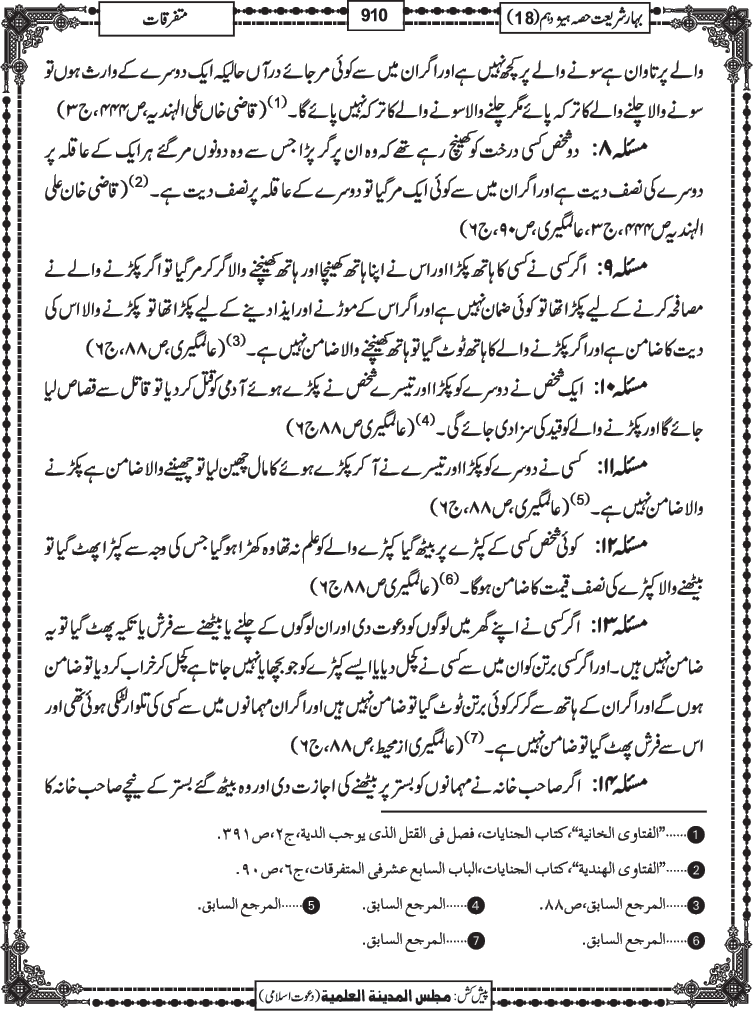 بہارِ شریعت حصہ ہیژدہم (18)
910
متفرقات
والے پر تاوان ہے سونے والے پر کچھ نہیں ہے اور اگر ان میں سے کوئی مر جائے درآں حالیکہ ایک دوسرے کے وارث ہوں تو
سونے والا چلنے والے کا ترکہ پائے گا مگر چلنے والا سونے والے کا ترکہ نہیں پائے گا۔(1) (قاضی خاں علی الہندیہ، ص۴۴۴، ج۳)
مسئلہ ۸: دو شخص کسی درخت کو کھینچ رہے تھے کہ وہ ان پر گر پڑا جس سے وہ دونوں مر گئے ہر ایک کے عاقلہ پر
دوسرے کی نصف دیت ہے اور اگر ان میں سے کوئی ایک مر گیا تو دوسرے کے عاقلہ پر نصف دیت ہے۔(2) (قاضی خان علی
الہندیہ ص۴۴۴، ج۳، عالمگیری، ص۹۰، ج۶)
مسئلہ ۹: اگر کسی نے کسی کا ہاتھ پکڑا اور اس نے اپنا ہاتھ کھینچا اور ہاتھ کھینچنے والا گر کر مر گیا تو اگر پکڑنے والے نے
مصافحہ کرنے کے لیے پکڑا تھا تو کوئی ضمان نہیں ہے اور اگر اس کے موڑنے اور ایذا دینے کے لیے پکڑا تھا تو پکڑنے والا اس کی
دیت کا ضامن ہے اور اگر پکڑنے والے کا ہاتھ ٹوٹ گیا تو ہاتھ کھینچنے والا ضامن نہیں ہے۔(3) (عالمگیری، ص۸۸، ج۶)
مسئلہ ۱۰: ایک شخص نے دوسرے کو پکڑا اور تیسرے شخص نے پکڑے ہوئے آدمی کو قتل کر دیا تو قاتل سے قصاص لیا
جائے گا اور پکڑنے والے کو قید کی سزا دی جائے گی۔(4) (عالمگیری ص۸۸ ج۶)
مسئلہ ۱۱: کسی نے دوسرے کو پکڑا اور تیسرے نے آ کر پکڑے ہوئے کا مال چھین لیا تو چھیننے والا ضامن ہے پکڑنے
والا ضامن نہیں ہے۔(5) (عالمگیری، ص۸۸، ج۶)
مسئلہ ۱۲: کوئی شخص کسی کے کپڑے پر بیٹھ گیا کپڑے والے کو علم نہ تھا وہ کھڑا ہو گیا جس کی وجہ سے کپڑا پھٹ گیا تو
بیٹھنے والا کپڑے کی نصف قیمت کا ضامن ہوگا۔(6) (عالمگیری ص۸۸ ج۶)
مسئلہ ۱۳: اگر کسی نے اپنے گھر میں لوگوں کو دعوت دی اور ان لوگوں کے چلنے یا بیٹھنے سے فرش یا تکیہ پھٹ گیا تو یہ
ضامن نہیں ہیں۔ اور اگر کسی برتن کو ان میں سے کسی نے کچل دیا یا ایسے کپڑے کو جو بچھایا نہیں جاتا ہے کچل کر خراب کر دیا تو ضامن
ہوں گے اور اگر ان کے ہاتھ سے گر کر کوئی برتن ٹوٹ گیا تو ضامن نہیں ہیں اور اگر ان مہمانوں میں سے کسی کی تلوار لٹکی ہوئی تھی اور
اس سے فرش پھٹ گیا تو ضامن نہیں ہے۔(7) (عالمگیری از محیط، ص۸۸، ج۶)
مسئلہ ۱۴: اگر صاحب خانہ نے مہمانوں کو بستر پر بیٹھنے کی اجازت دی اور وہ بیٹھ گئے بستر کے نیچے صاحب خانہ کا
1 ......"الفتاوی الخانیة"، کتاب الجنایات، فصل فی القتل الذی یوجب الدیة، ج۲، ص۳۹۱.
2 ......"الفتاوی الهندیة"، کتاب الجنایات، الباب السابع عشر فی المتفرقات، ج۶، ص۹۰.
3 ......المرجع السابق، ص۸۸. 4 ......المرجع السابق. 5 ......المرجع السابق.
6 ......المرجع السابق. 7 ......المرجع السابق.
پیش کش: مجلس المدینة العلمیة (دعوت اسلامی)